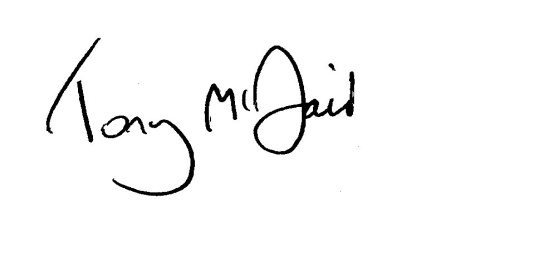 Tony McDaid